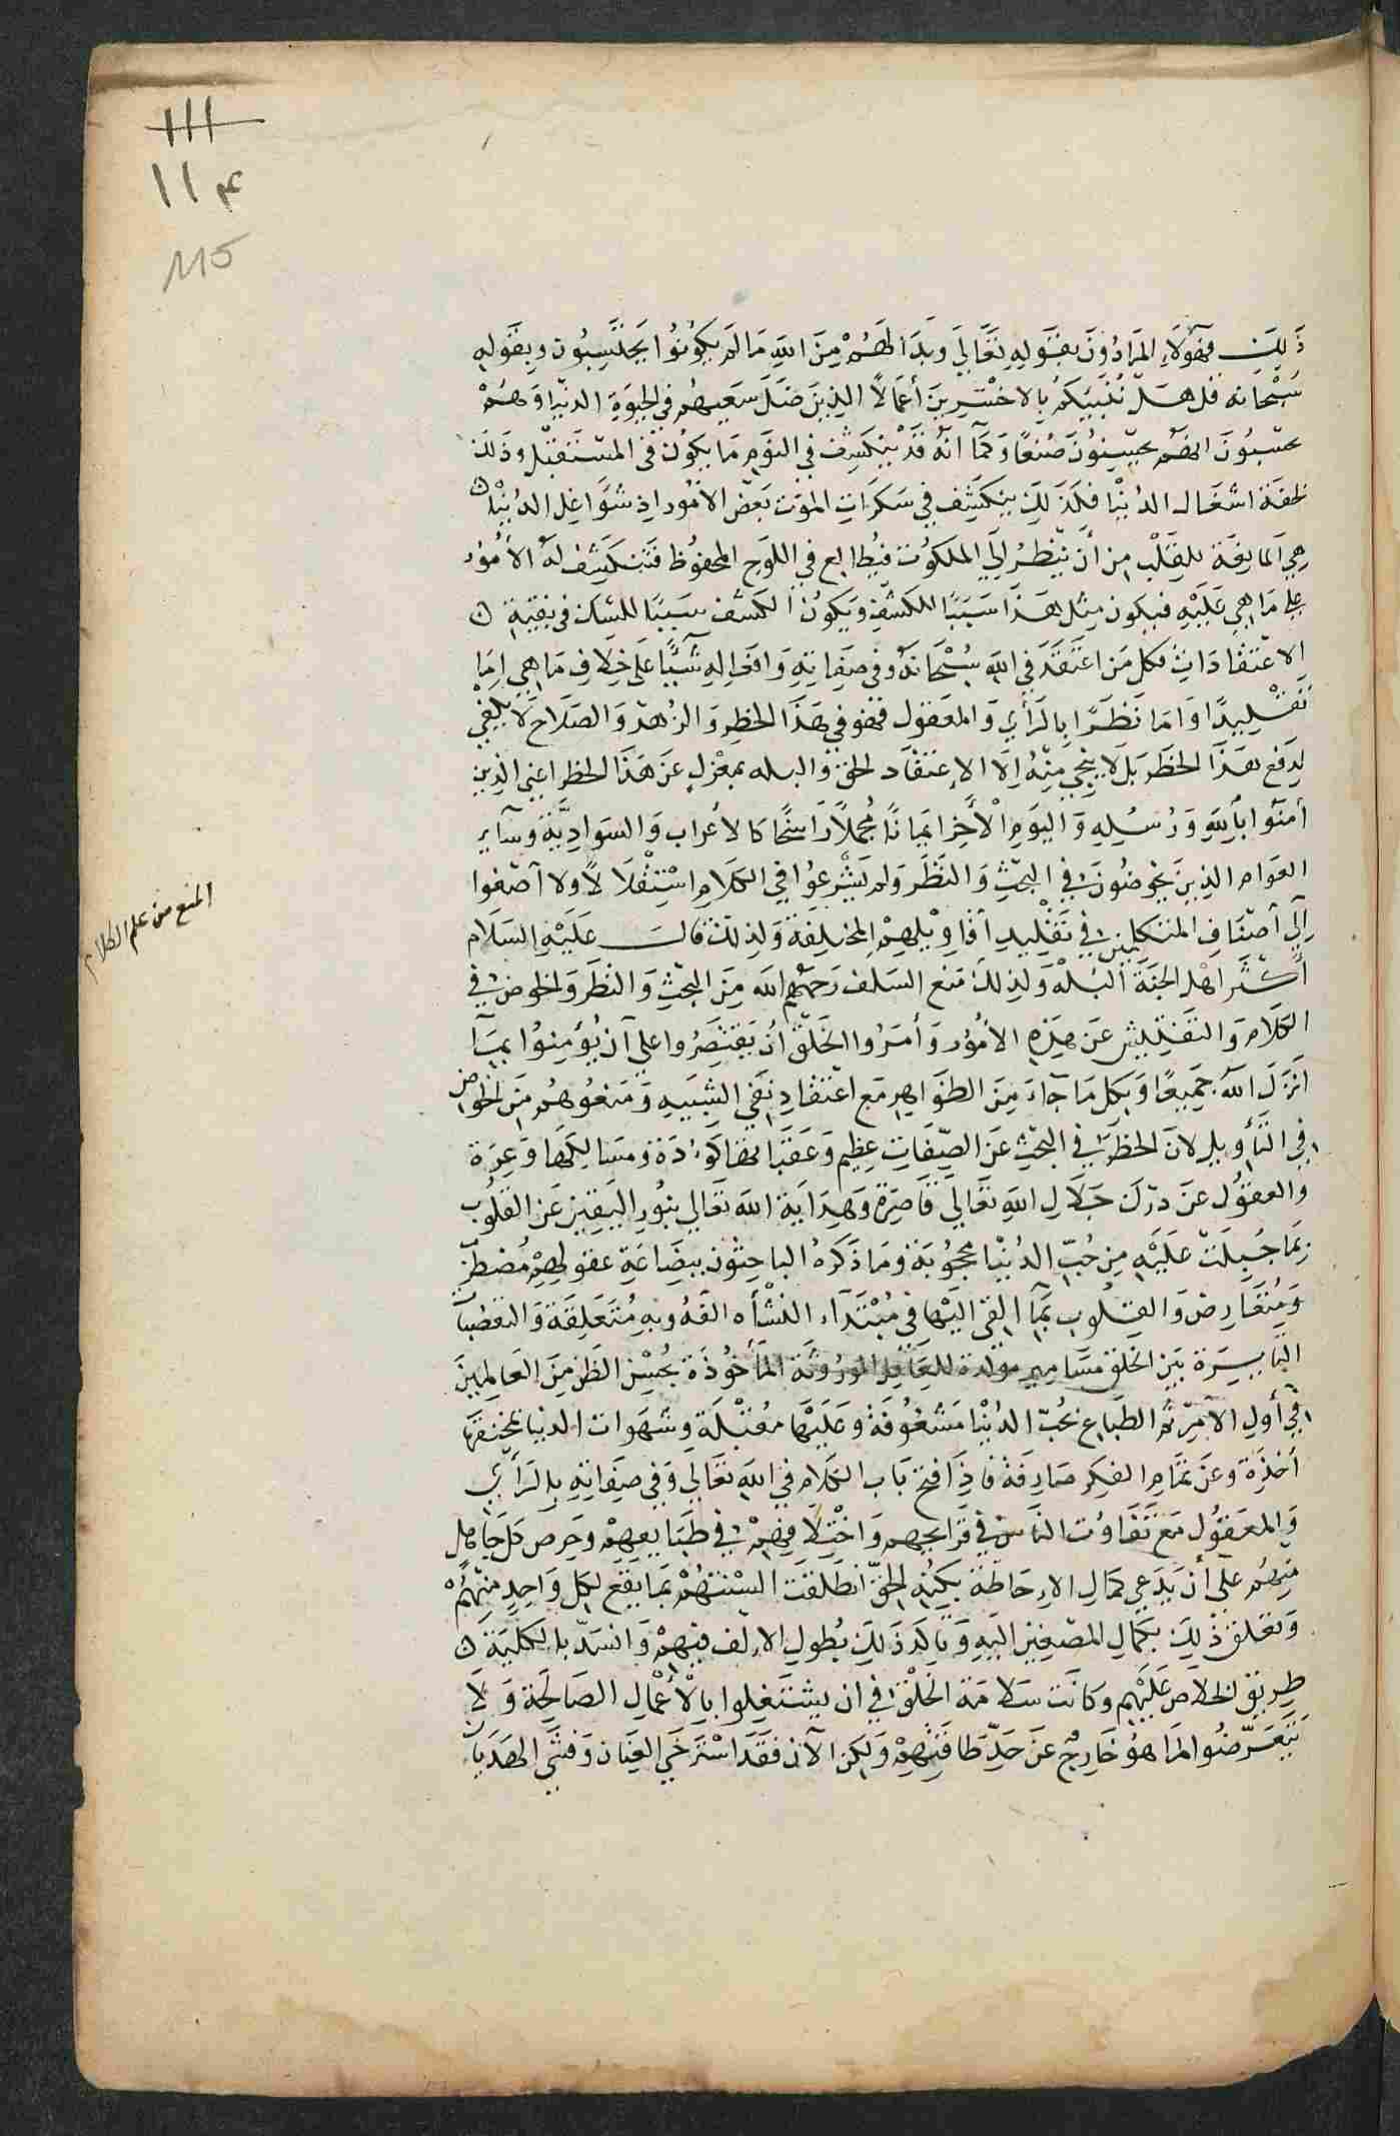 ١١١
١١٤
115
ذَلِكَ فهَؤلَاءِ المرَادُونَ بقَولِهِ تعَالَى وبَدَا لهَمُ مِنَ اللهِ مَا لَم يَكُونُوا يَحتَسِبُون وبِقَولِهِ
سُبْحانه قل هَل نُنَبّئِكُم بِالاخسَرِينَ أعمَالاً الذِينَ ضَلَّ سَعيُهُم في الحَيَوةِ الدنيا وَهُمْ
يحسَبُونَ انهُم يحسِنُونَ صُنعًا وَكَما انّه قَد ينكَشِف في النَومِ مَا يكُون في المستَقبل وذَلَك
لخفة اشغَال الدُنيَا فكَذَلِكَ ينكَشِف في سَكَرَاتِ الموَت بَعضُ الأمُور اذ شَوَاغِل الدُنيا
هِي المانِعَة للِقَلْبِ مِن أنَ يَنْظُر إلَى الملَكُوت فيُطالِع في اللوَح المحفُوظ فَتنكَشِف لَهُ الأمُور
عَلى مَا هِي عَلَيْهِ فيكون مِثل هَذَا سَبَبًا للكَشفِ وَيَكُونُ الكَشف سَبَبًا للشَك في بَقيَّةِ
الاعتقَادَاتِ فكل مَن اعتَقَدَ في اللهَ سُبْحَانَهُ وفي صِفَاتِهِ وَافعَالِهِ شَيْئًا عَلَى خِلَافِ مَا هِي إمّا
تَقْلِيدًا وَامَا نَظَرًا بِالرَأي وَالمعَقول فهو في هَذَا الخطرِ وَالزُهد وَالصَلَاح لَا يَكفي
لِدَفع هَذَا الخَطَر بَل لَا ينجي مِنهُ اِلَّا الإعتقَاد الحق وَالبله بمعْزِل عَن هَذا الخطر اعني الذين
أمنَوُا بِاللَّهِ وَرُسُلِهِ وَاليَومِ الْأخِر ايمَانًا مُجملاً رَاسِخًا كَالأعراب وَالسوَادِيَّة وسآير
العوَام الذِينَ لَم يخوضُونَ في البَحثِ وَالنَظَر وَلم يَشْرعُوا فيِ الكَلَامِ اسْتِقْلَالاً ولا اَصغَوا
إلَى أصنَافِ المتَكَلمِين في تَقْلِيدِ أقَاوِيْلِهِمْ المختلِفَة وَلِذلِكَ قَالَ عَلَيْهِ السَلَام
أكْثَر اهْل الجَنَة البُلْه وَلِذلك مَنع السَلَف رَحمَهُم الله مِنَ البَحثِ وَالنَظَرِ وَالخوض في
الكَلَام وَالتفتِيش عَن هَذِهِ الأمُور وَأمَرُوا الخَلْقَ أنْ يَقتَصِرُوا علَى أن يُؤمِنُوا بِمَا
انَزَلَ اللهُ جَمِيعًا وَبِكل مَا جَاءَ مِنَ الظَوَاهِرِ مَع اعْتِقَادِ نَفي الشبيهِ وَمَنعُوهُم مِنَ الخوضِ
في التَأويل لانَ الخطَرَ في البَحثِ عَن الصِفَاتِ عَظِيم وَعَقبَاتهَا كَؤدَة وَمسَالِكهَا وَعِرَة
وَالعقُول عَن درك جَلَالِ اللهِ تعَالَى قَاصِرَةٌ وَهِدَايَة الله تعَالى بنُورِ اليَقِين عَن القلوُب
بِمَا جُبِلَتْ عَلَيْهِ مِن حُبّ الدُنيَا محجُوبَة وَمَا ذَكَرَهُ البَاحِثُون ببضَاعَةِ عقولهِمْ مُضطَرِبٌ
وَمُتَعَارِض وَالقُلُوب بمَا القي اليَهَا في مُبتَدَاءِ النَشْأه الفَة وَبِهِ مُتَعَلِقَة وَالتَعَصُبَات
الثَائِرَة بَين الخلق مسَامِير مؤكدة لِلعَقَائِد الموَرُوثَة المأخُوذَة بُحسْن الظَن مِنَ المعَلِمينَ
فِي أولِ الأمر ثُمّ الطَباع بحُبّ الدُنيَا مَشغُوفَة وَعَلَيْهَا مقبِلَة وَشهَوَات الدُنيا بمخنقهَا
آخِذَة وَعَن تمَامِ الفِكر صَارِفَة فَاذَا فتح بَاب الكَلَامِ في اللهِ تعَالى وَفي صِفَاتِهِ بِالرَأي
وَالمعَقوُل مَع تَفَاوُت النَاس في قرَايحهم وَاخْتِلَافِهِمْ في طَبَايعهِمْ وَحِرصِ كل جَاهِل
مِنهُم عَلَى أن يَدَعي كَمَال الإحَاطَة بكُنْهِ الحَقّ انطَلَقَت السْنتهُمْ بمَا يَقَع لِكل وَاحِدٍ مِنهُمْ
وَتعَلق ذَلِكَ بقُلوب المصْغِين اليَهِ وَتَأكَد ذَلِكَ بطُول الإلف فيهِمْ وَانسَدّ بِالكُلِيَة
طَرِيق الخَلاصِ عَليَهم وَكانَت سَلامَة الخَلْق في ان يشتَغِلوا بِالْأعمَالِ الصَالحَة وَلَا
يَتَعَرّضُوا لمَا هُوَ خَارِجٌ عَن حَدِّ طَاقَتِهِمْ وَلَكِن الآن فَقَد اسْتَرخَى العِنَان وَفَشَى الهَذَيَان
المنع من علم الكلام